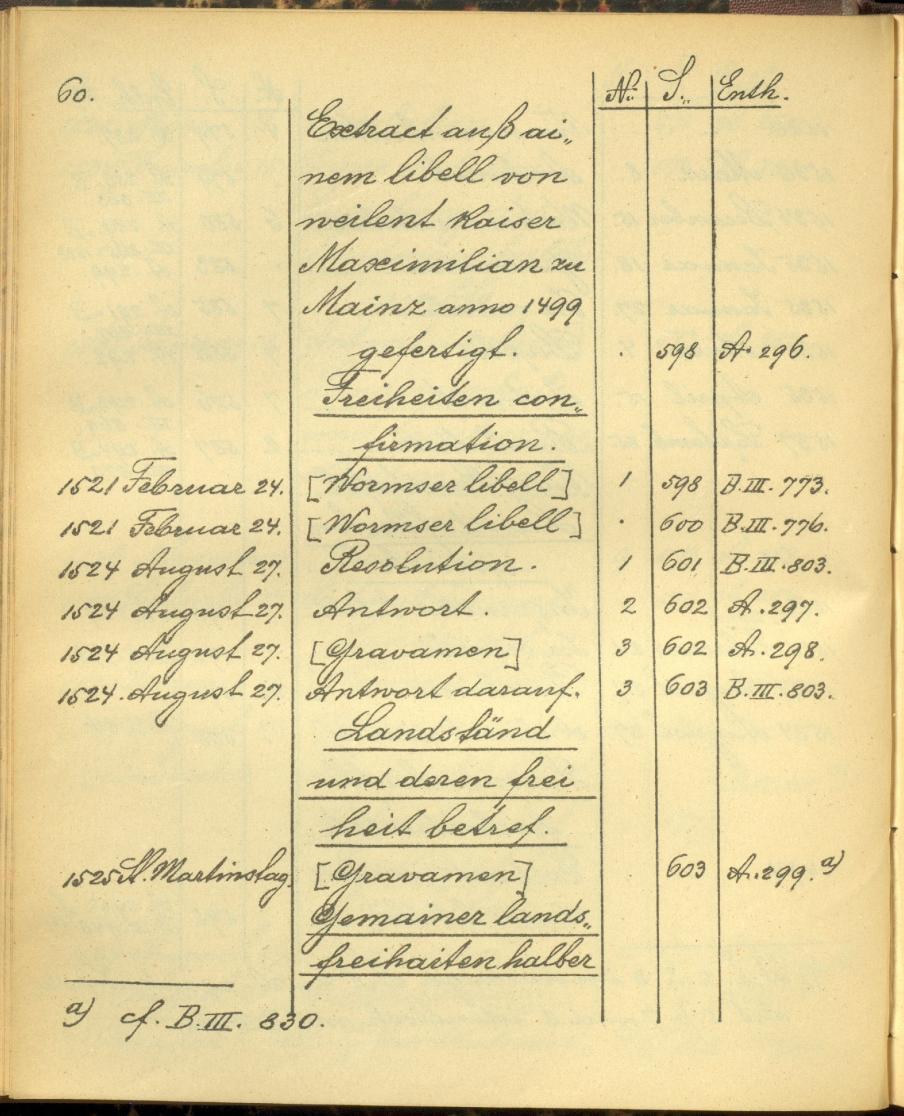 60. N: S.. Enth.
Extract auß ai„
nem libell von
weilent kaiser
Maximilian zu
Mainz anno 1499
gefertigt. . 598 A. 296.
Freiheiten con„
firmation.
1521 Februar 24. [Wormser libell] 1 598 B.III. 773.
1521 Februar 24. [Wormser libell] . 600 B.III. 776.
1524 August 27. Resolution. 1 601 B.III. 803.
1524 August 27. Antwort. 2 602 A. 297.
1524 August 27. [Gravamen] 3 602 A. 298.
1524. August 27. Antwort darauf. 3 603 B.III. 803.
Landständ
und deren frei
heit betref.
1525 St. Martinstag. [Gravamen] 603 A. 299. a)
Gemainer lands„
freihaiten halber
a) cf. B.III. 830.